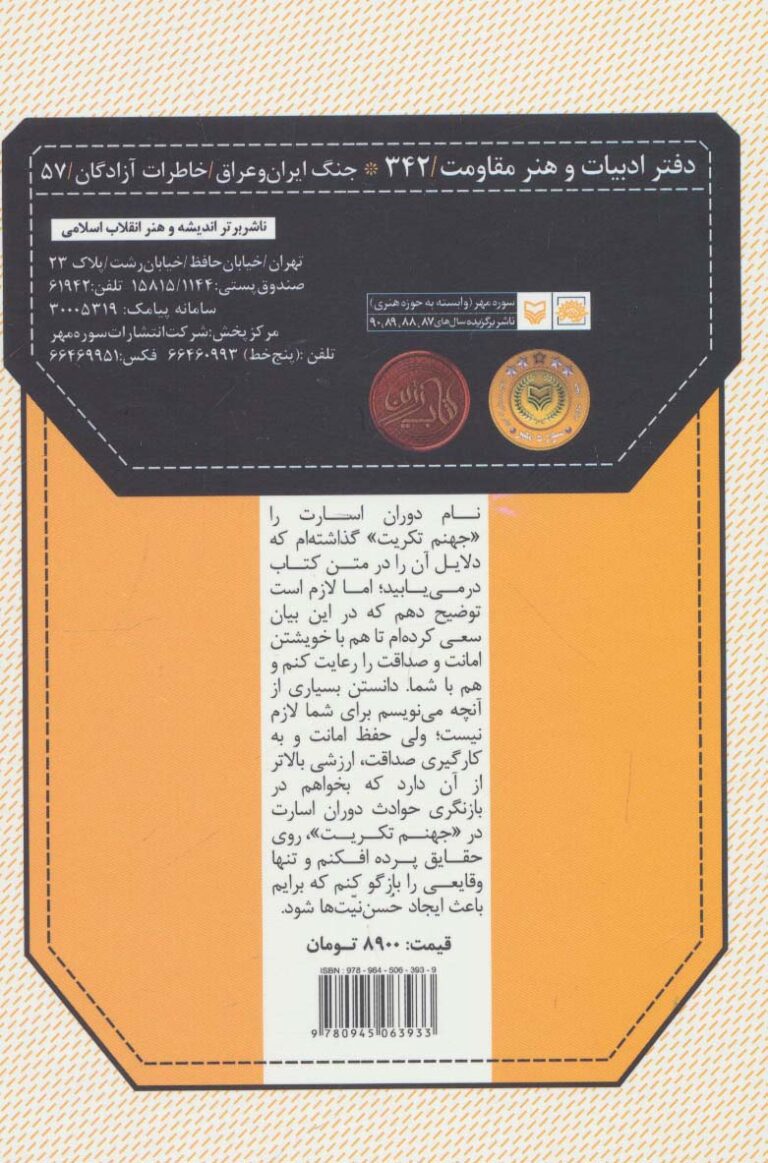 دفتر ادبیات و هنر مقاومت/۳۴۲ * جنگ ایران‌وعراق/خاطرات آزادگان/۵۷
ناشر برتر اندیشه و هنر انقلاب اسلامی
تهران/خیابان‌حافظ/خیابان‌رشت/پلاک ۲۳
صندوق‌پستی:۱۵۸۱۵/۱۱۴۴ تلفن:۶۱۹۴۲
سامانه پیامک: ۳۰۰۰۵۳۱۹
مرکزپخش:شرکت‌انتشارات‌سوره‌مهر
تلفن :(پنج‌خط) ۶۶۴۶۰۹۹۳ فکس:۶۶۴۶۹۹۵۱
سوره مهر (وابسته به حوزه هنری)
ناشر برگزیده سال‌های ۸۷، ۸۸، ۸۹، ۹۰
نام دوران اسارت را
«جهنم تکریت» گذاشته‌ام که
دلایل آن را در متن کتاب
درمی‌یابید؛ اما لازم است
توضیح دهم که در این بیان
سعی کرده‌ام تا هم با خویشتن
امانت و صداقت را رعایت کنم و
هم با شما. دانستن بسیاری از
آنچه می‌نویسم برای شما لازم
نیست؛ ولی حفظ امانت و به
کارگیری صداقت، ارزشی بالاتر
از آن دارد که بخواهم در
بازنگری حوادث دوران اسارت
در «جهنم تکریت»، روی
حقایق پرده افکنم و تنها
وقایعی را بازگو کنم که برایم
باعث ایجاد حُسن‌نیّت‌ها شود.
قیمت: ۸۹۰۰ تومان
ISBN : 978 - 964 - 506 - 393 - 9
9 780945 063933